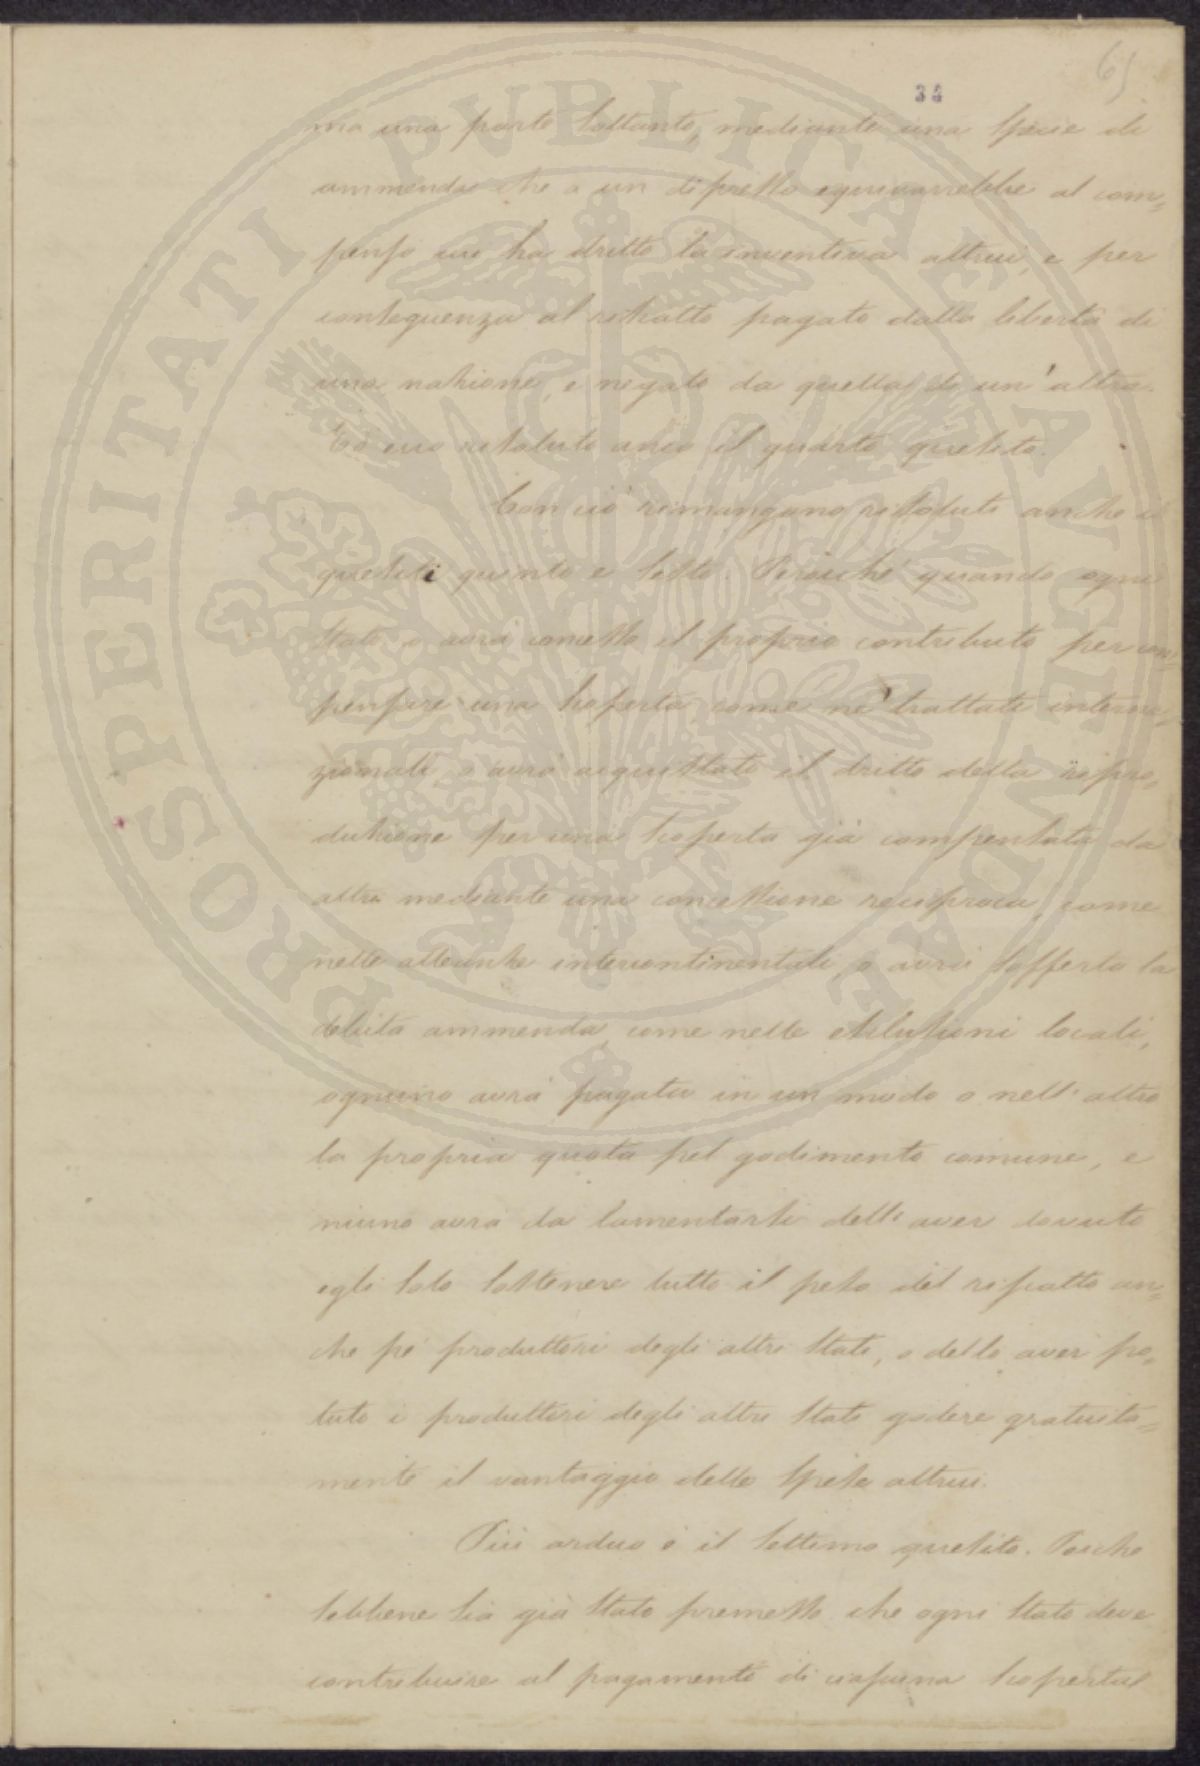 65
34
ma una parte soltanto, mediante una specie di
ammenda che a un dipresso equivarrebbe al com=
penso cui ha dritto la inventiva altrui, e per
conseguenza al riscatto pagato dalla libertà di
una nazione, e negato da quella di un'altra.
Ed ecco risoluto anco il quarto quesito.
Con ciò rimangono risoluti anche i
quesiti quinto e sesto. Perocché quando ogni
Stato o avrà concesso il proprio contributo per com=
pensare una scoperta, come ne' trattati interna=
zionali, o avrà acquistato il dritto della ripro=
duzione per una scoperta già compensata da
altri mediante una concessione reciproca, come
nelle alleanze intercontinentali, o avrà sofferto la
debita ammenda, come nelle esclusioni locali,
ognuno avrà pagata in un modo o nell'altro
la propria quota pel godimento comune, e
niuno avrà da lamentarsi dell'aver dovuto
egli solo sostenere tutto il peso del riscatto an=
che pe' produttori degli altri Stati, o dello aver po=
tuto i produttori degli altri Stati godere gratuita=
mente il vantaggio delle spese altrui.
Più arduo è il settimo quesito. Poiché
sebbene sia già stato premesso che ogni Stato deve
contribuire al pagamento di ciascuna scoperta
PROSPERITATI PVBLICAE AVGENDAE